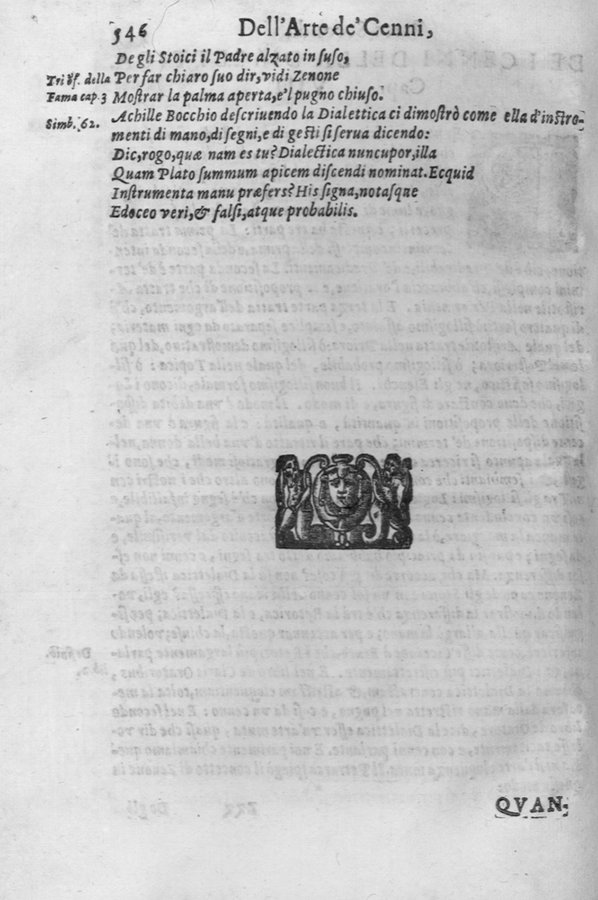 546 Dell'Arte de' Cenni,
De gli Stoici il Padre alzato in suso,
Trióf. della Per far chiaro suo dir, vidi Zenone
Fama cap. 3 Mostrar la palma aperta, e'l pugno chiuso.
Simb. 62. Achille Bocchio descriuendo la Dialettica ci dimostrò come ella d'instro-
menti di mano, di segni, e di gesti si serua dicendo:
Dic, rogo, quæ nam es tu? Dialectica nuncupor, illa
Quam Plato summum apicem discendi nominat. Ecquid
Instrumenta manu præfers? His signa, notasque
Edoceo veri, & falsi, atque probabilis.
QVAN-